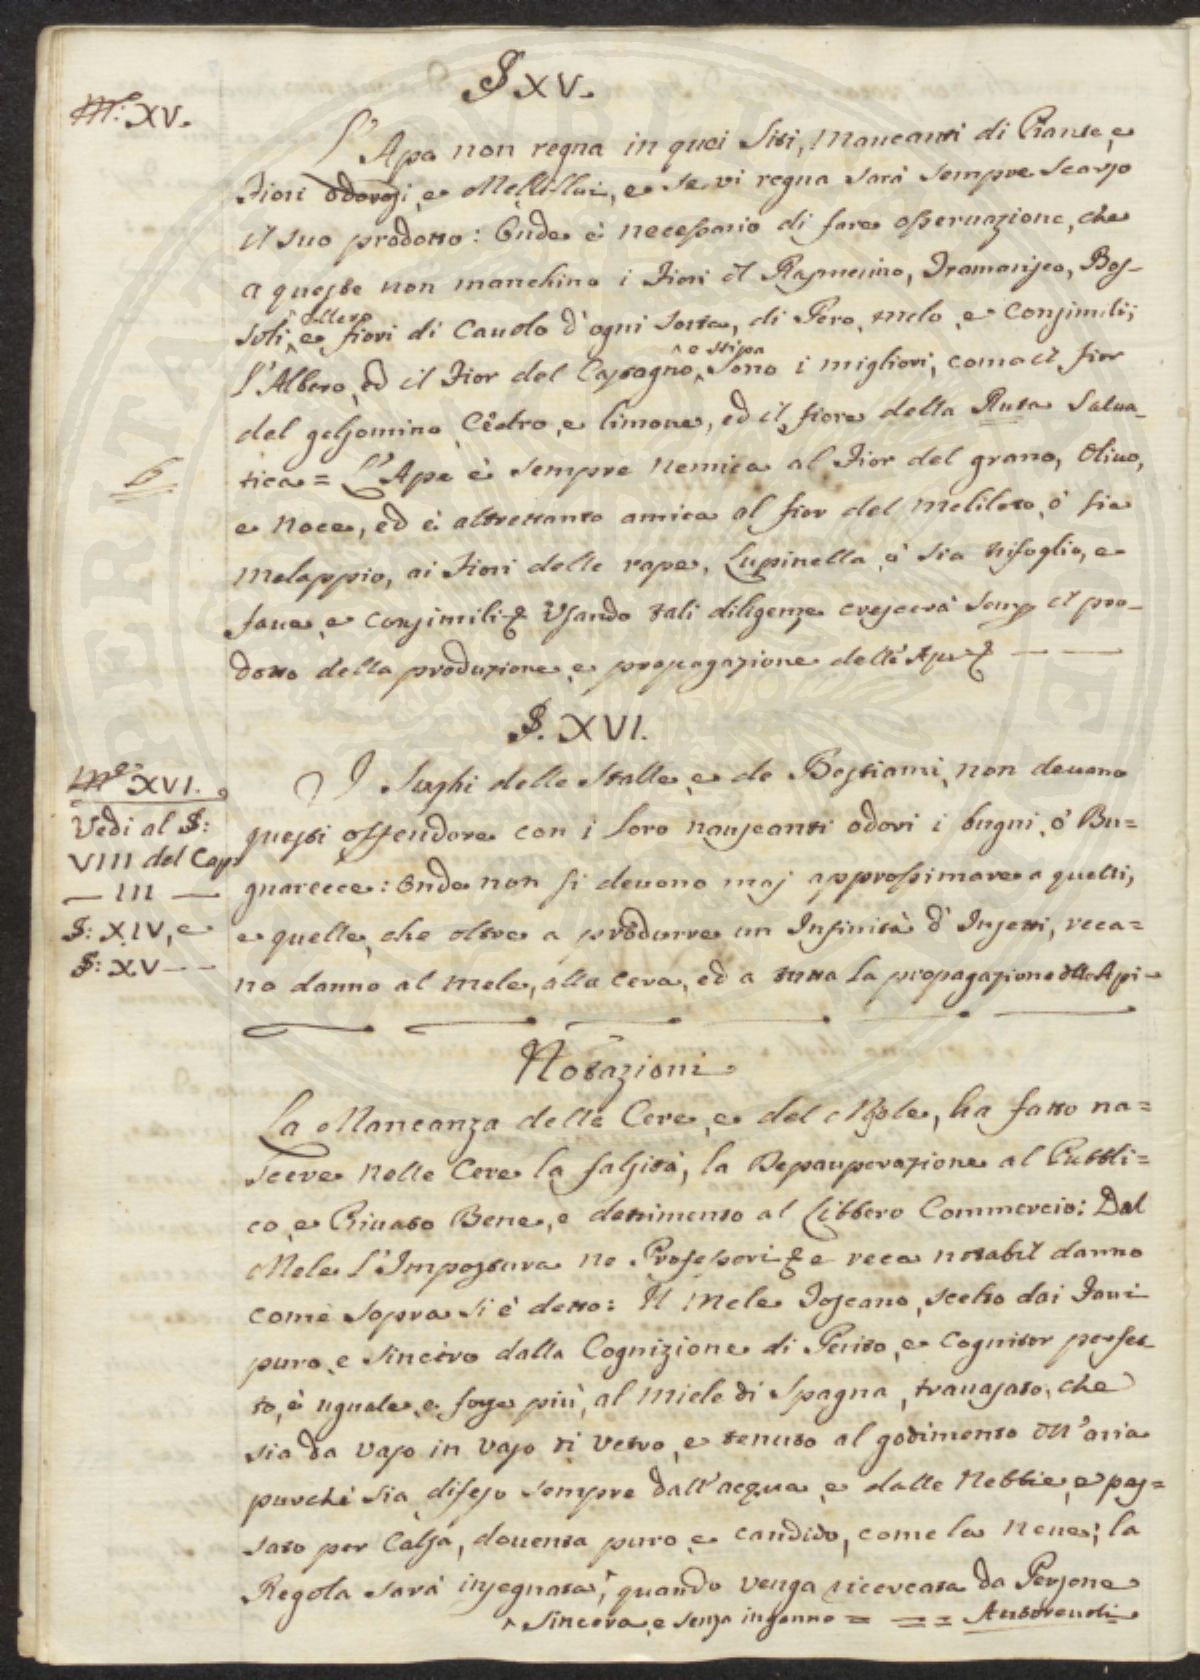 § XV.
M.: XV.
L'Apa non regna in quei Siti, Mancanti di Piante, e
Fiori odorosi, e Mellifflui, e se vi regna sarà sempre scarso
il suo prodotto: Onde è necessario di fare osservazione, che
a queste non manchino i Fiori il Ramerino, Tramarigeo, Bos-
soli, ^ Ellera e fiori di Cauolo d'ogni sorta, di Pero, melo, e Consimili;
L'Albero, ed il Fior del Castagno, ^ e stipa Sono i migliori, come il fior
del gelsomino, Cedro, e limone, ed il fiore della Ruta Salua-
tica = L'Ape è sempre nemica al Fior del grano, Oliuo,
6
e Noce, ed è altrettanto amica al fior del meliloto, ò sia
Melappio, ai Fiori delle rape, Lupinella, ò sia trifoglio, e
faue, e consimili & Usando tali diligenze crescerà semp il pro-
dotto della produzione, e propagazione delle Api & — —
§. XVI.
M.e XVI.
Vedi al §:
VIII del Cap
— III —
§: XIV, e
§: XV — —
I Sughi delle Stalle, e de Bestiami, non deuono
questi offendere con i loro nauseanti odori i bugni, ò Bu=
gnarecce: Onde non si deuono maj approssimare a quelli,
e quelle, che oltre a produrre un Infinità d'Insetti, reca=
no danno al mele, alla Cera, ed a tutta la propagazione dlle Api—
Notazioni
La Mancanza delle Cere, e del Mele, ha fatto na=
scere nelle Cere la falsità, la Depauperazione al Pubbli=
co, e Priuato Bene, e detrimento al Libbero Commercio: Dal
Mele l'Impostura ne Professori & e reca notabil danno
come sopra si è detto: Il Mele Toscano, scelto dai Faui
puro, e sincero dalla Cognizione di Perito, e Cognitor perfet
to, è uguale, e forse più, al Miele di Spagna, trauasato, che
sia da vaso in vaso di Vetro, e tenuto al godimento dll'aria
purchè sia difeso sempre dall'acqua, e dalle Nebbie, e pas=
sato per Calza, douenta puro, e candido, come la Neue; la
Regola sarà insegnata, ^ quando venga ricercata da Persone
^ Sincera, e senza inganno = = = Autoreuoli